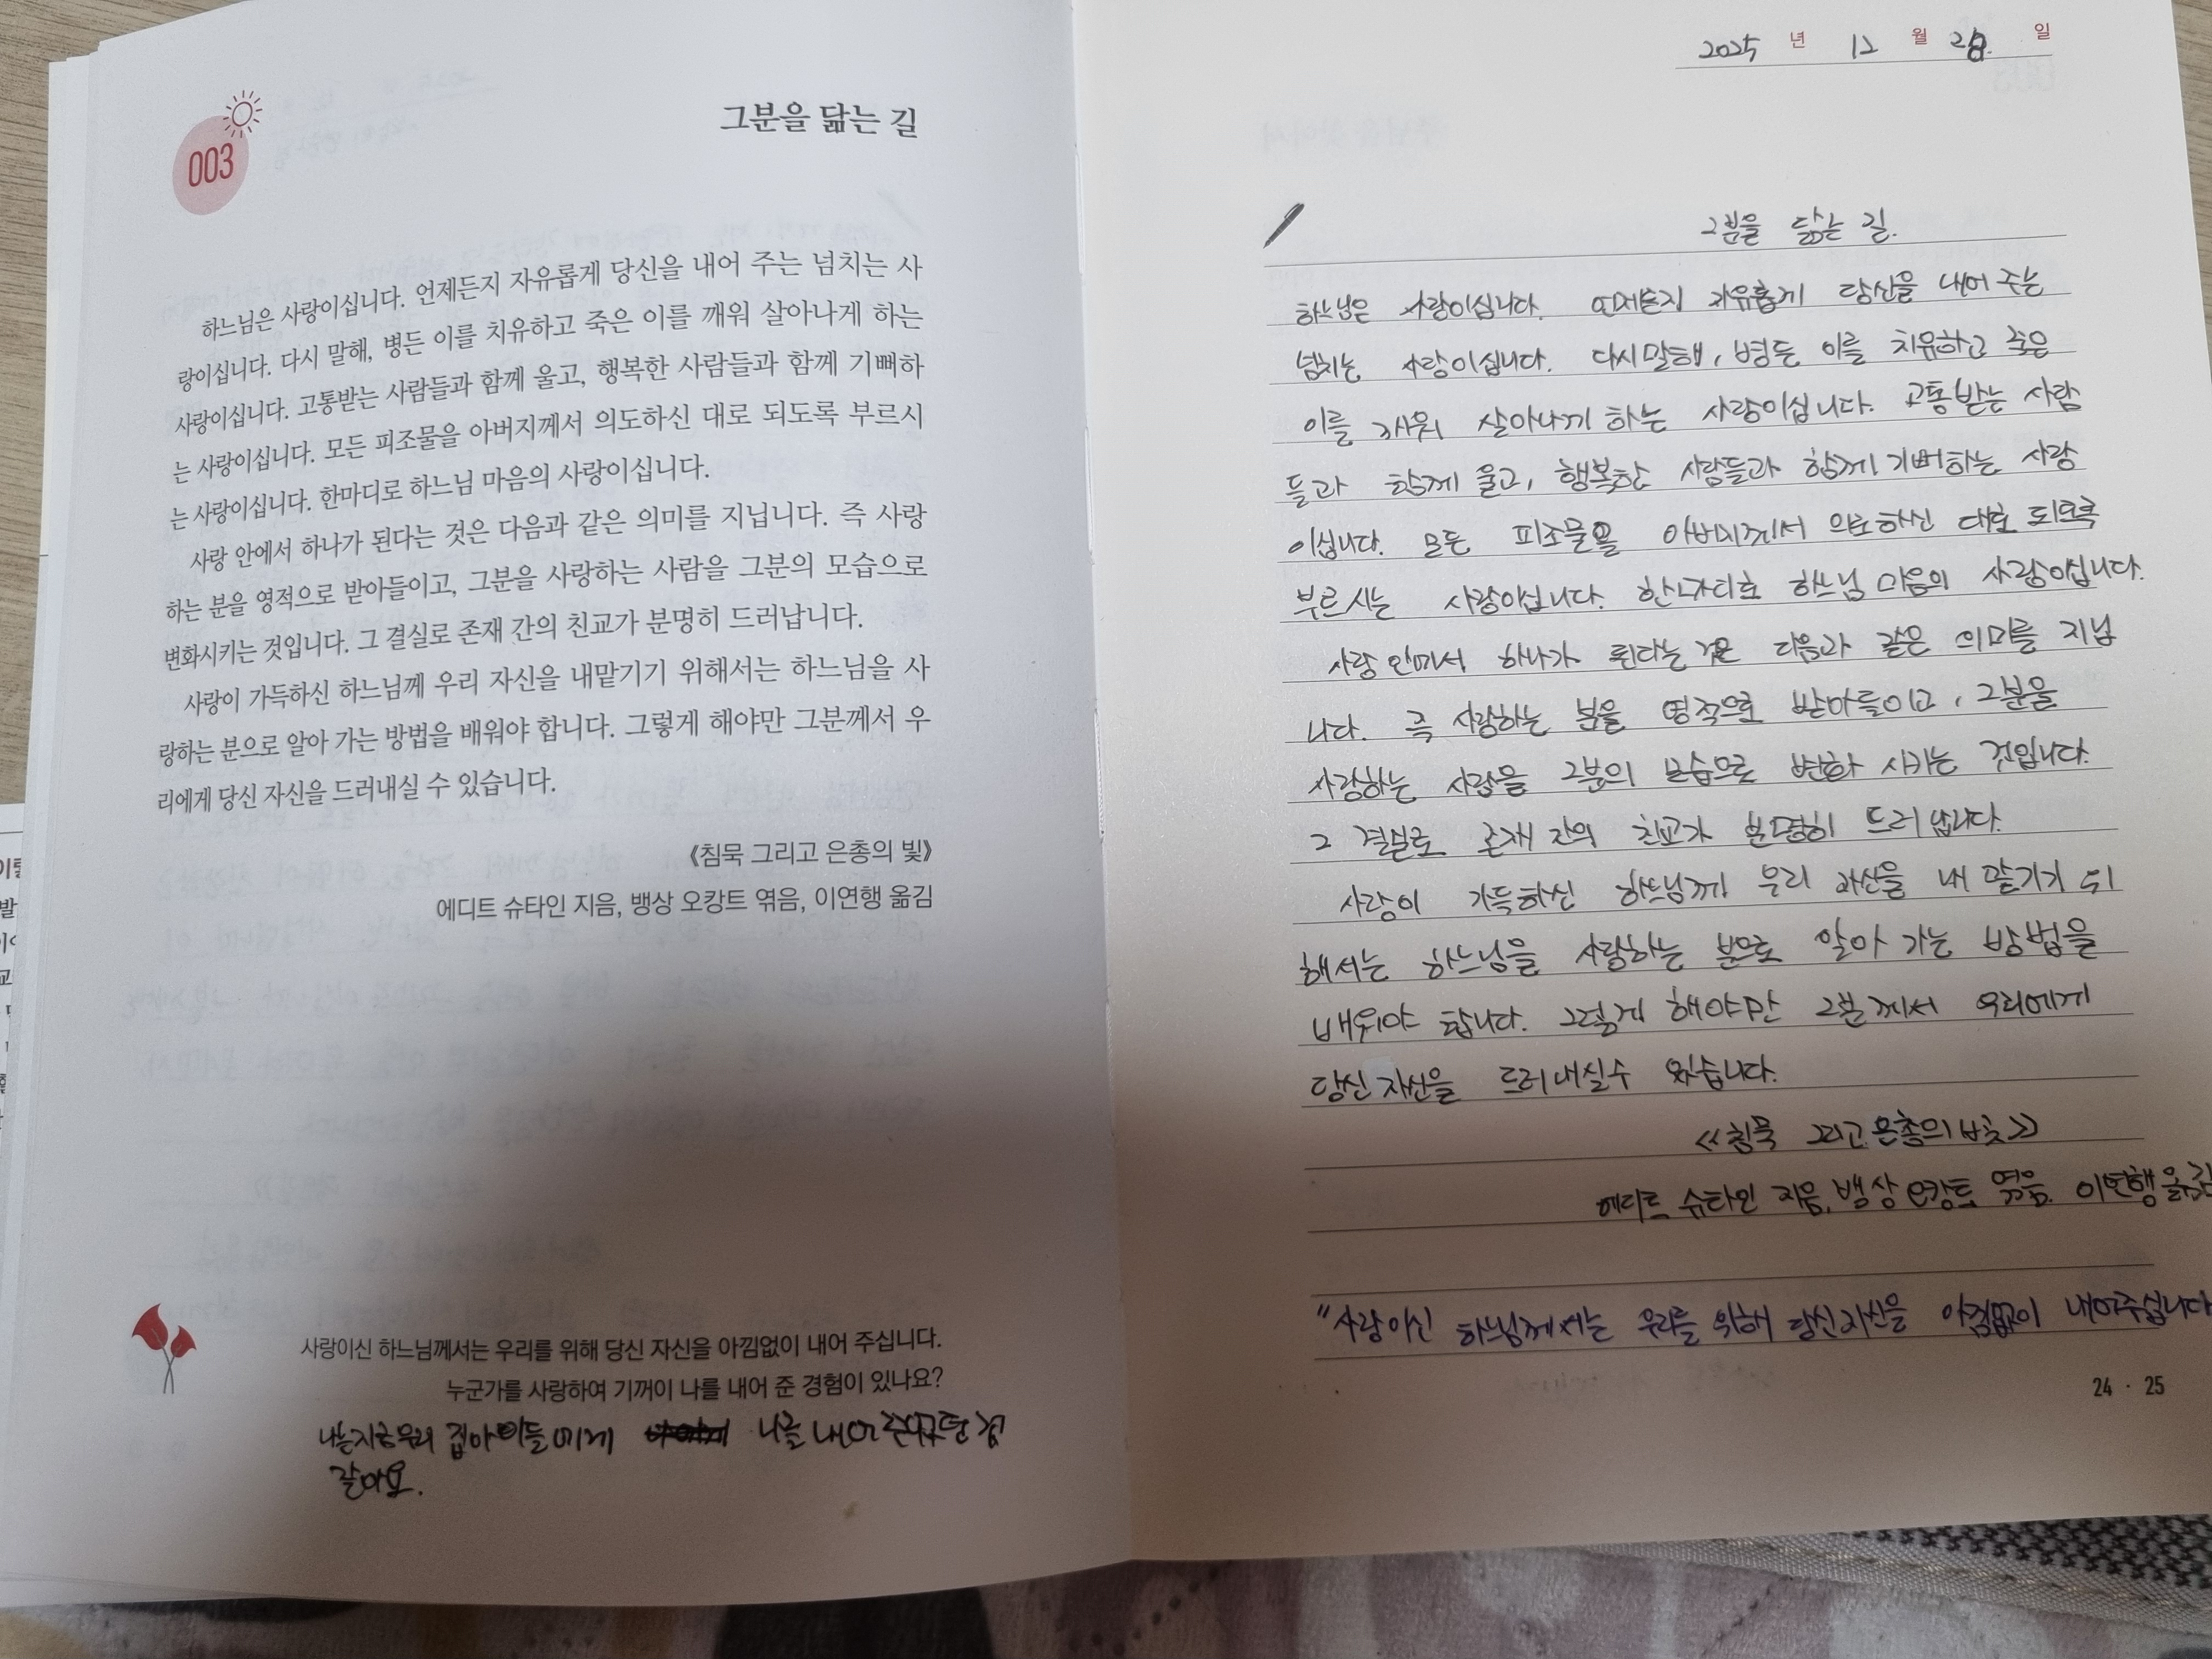 003
그분을 닮는 길
하느님은 사랑이십니다. 언제든지 자유롭게 당신을 내어 주는 넘치는 사
랑이십니다. 다시 말해, 병든 이를 치유하고 죽은 이를 깨워 살아나게 하는
사랑이십니다. 고통받는 사람들과 함께 울고, 행복한 사람들과 함께 기뻐하
는 사랑이십니다. 모든 피조물을 아버지께서 의도하신 대로 되도록 부르시
는 사랑이십니다. 한마디로 하느님 마음의 사랑이십니다.
사랑 안에서 하나가 된다는 것은 다음과 같은 의미를 지닙니다. 즉 사랑
하는 분을 영적으로 받아들이고, 그분을 사랑하는 사람을 그분의 모습으로
변화시키는 것입니다. 그 결실로 존재 간의 친교가 분명히 드러납니다.
사랑이 가득하신 하느님께 우리 자신을 내맡기기 위해서는 하느님을 사
랑하는 분으로 알아 가는 방법을 배워야 합니다. 그렇게 해야만 그분께서 우
리에게 당신 자신을 드러내실 수 있습니다.
《침묵 그리고 은총의 빛》
에디트 슈타인 지음, 뱅상 오캉트 엮음, 이연행 옮김
사랑이신 하느님께서는 우리를 위해 당신 자신을 아낌없이 내어 주십니다.
누군가를 사랑하여 기꺼이 나를 내어 준 경험이 있나요?
우리 집아이들에게 나를 내어
같아요.
2025 년 12 월 28. 일
그분을 닮는 길.
하느님은 사랑이십니다. 언제든지 자유롭게 당신을 내어 주는
넘치는 사랑이십니다. 다시말해, 병든 이를 치유하고 죽은
이를 깨워 살아나게 하는 사랑이십니다. 고통받는 사람
들과 함께 울고, 행복한 사람들과 함께 기뻐하는 사랑
이십니다. 모든 피조물을 아버지께서 의도하신 대로 되도록
부르시는 사랑이십니다. 한마디로 하느님 마음의 사랑이십니다.
사랑 안에서 하나가 된다는 것은 다음과 같은 의미를 지닙
니다. 즉 사랑하는 분을 영적으로 받아들이고, 그분을
사랑하는 사람을 그분의 모습으로 변화 시키는 것입니다.
그 결실로 존재 간의 친교가 분명히 드러납니다.
사랑이 가득하신 하느님께 우리 자신을 내 맡기기 위
해서는 하느님을 사랑하는 분으로 알아 가는 방법을
배워야 합니다. 그렇게 해야만 그분께서 우리에게
당신 자신을 드러내실수 있습니다.
《침묵 그리고 은총의 빛》
에디트 슈타인 지음, 뱅상 오캉트 엮음. 이연행 옮김
"사랑이신 하느님께서는 우리를 위해 당신자신을 아낌없이 내어주십니다
24 · 25